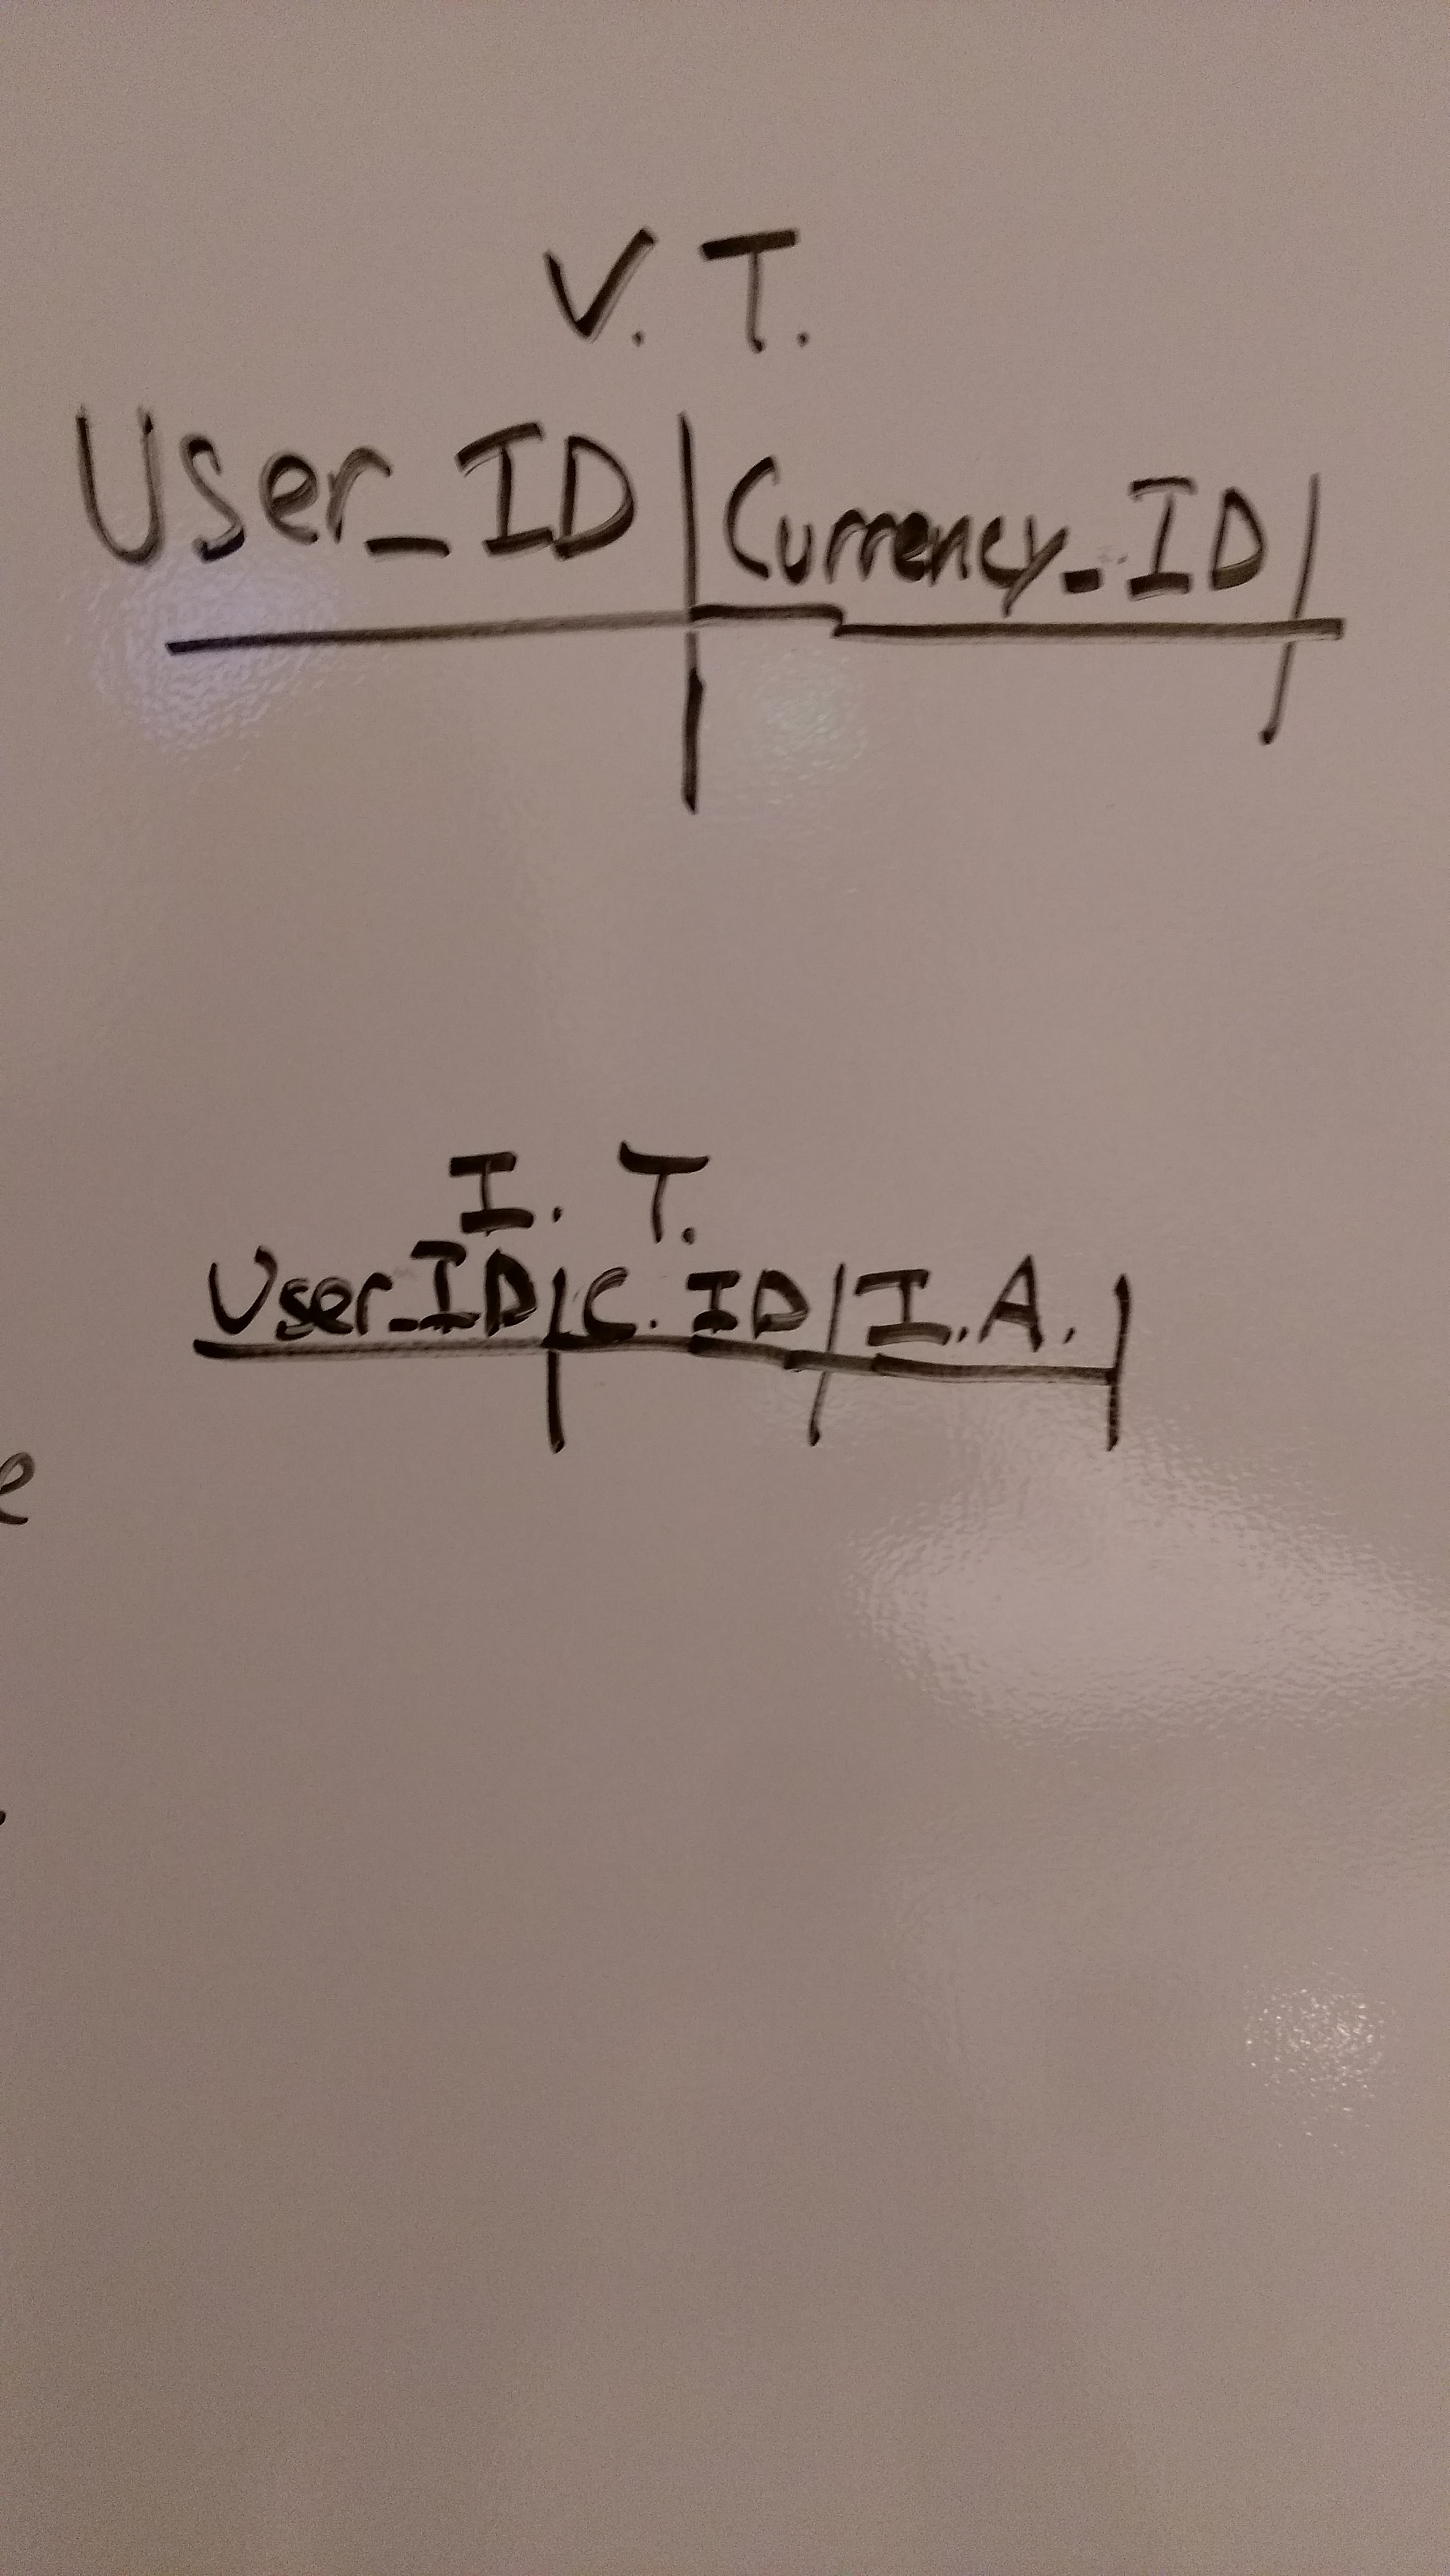 V. T.
User_ID | Currency_ID |
I. T.
User_ID | C. ID | I.A. |
e